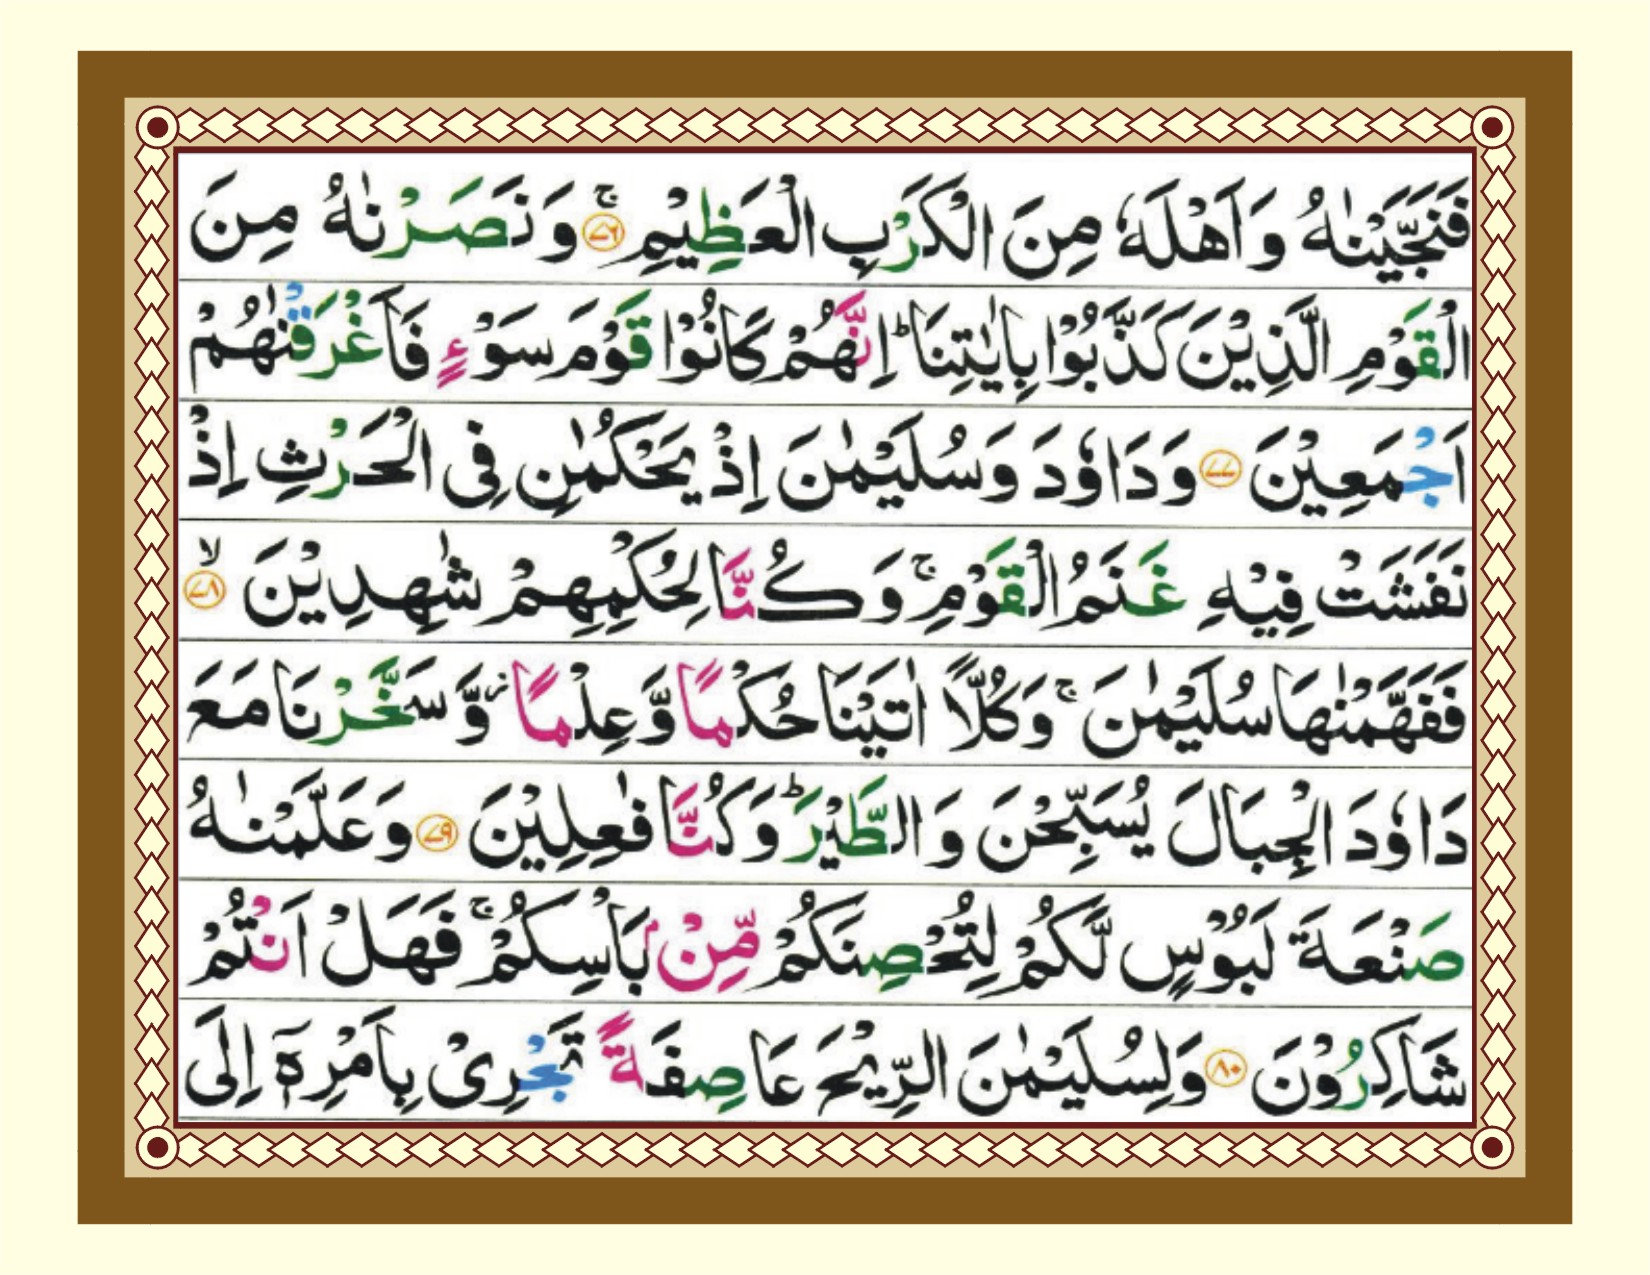 فَنَجَّيْنٰهُ وَاَهْلَهٗ مِنَ الْكَرْبِ الْعَظِيْمِ ۚ‏﴿۷۶﴾ وَ نَصَرْنٰهُ مِنَ
الْقَوْمِ الَّذِيْنَ كَذَّبُوْا بِاٰيٰتِنَا ؕ اِنَّهُمْ كَانُوْا قَوْمَ سَوْءٍ فَاَغْرَقْنٰهُمْ
اَجْمَعِيْنَ ﴿۷۷﴾ وَدَاوٗدَ وَسُلَيْمٰنَ اِذْ يَحْكُمٰنِ فِى الْحَرْثِ اِذْ
نَفَشَتْ فِيْهِ غَنَمُ الْقَوْمِ ۚ وَكُنَّا لِحُكْمِهِمْ شٰهِدِيْنَ ۙ﴿۷۸﴾
فَفَهَّمْنٰهَا سُلَيْمٰنَ ۚ وَكُلًّا اٰتَيْنَا حُكْمًا وَّعِلْمًا ؗ وَّسَخَّرْنَا مَعَ
دَاوٗدَ الْجِبَالَ يُسَبِّحْنَ وَالطَّيْرَ ؕ وَكُنَّا فٰعِلِيْنَ ﴿۷۹﴾ وَعَلَّمْنٰهُ
صَنْعَةَ لَبُوْسٍ لَّكُمْ لِتُحْصِنَكُمْ مِّنْۢ بَاْسِكُمْ ۚ فَهَلْ اَنْتُمْ
شَاكِرُوْنَ ﴿۸۰﴾ وَلِسُلَيْمٰنَ الرِّيْحَ عَاصِفَةً تَجْرِىْ بِاَمْرِهٖۤ اِلَى